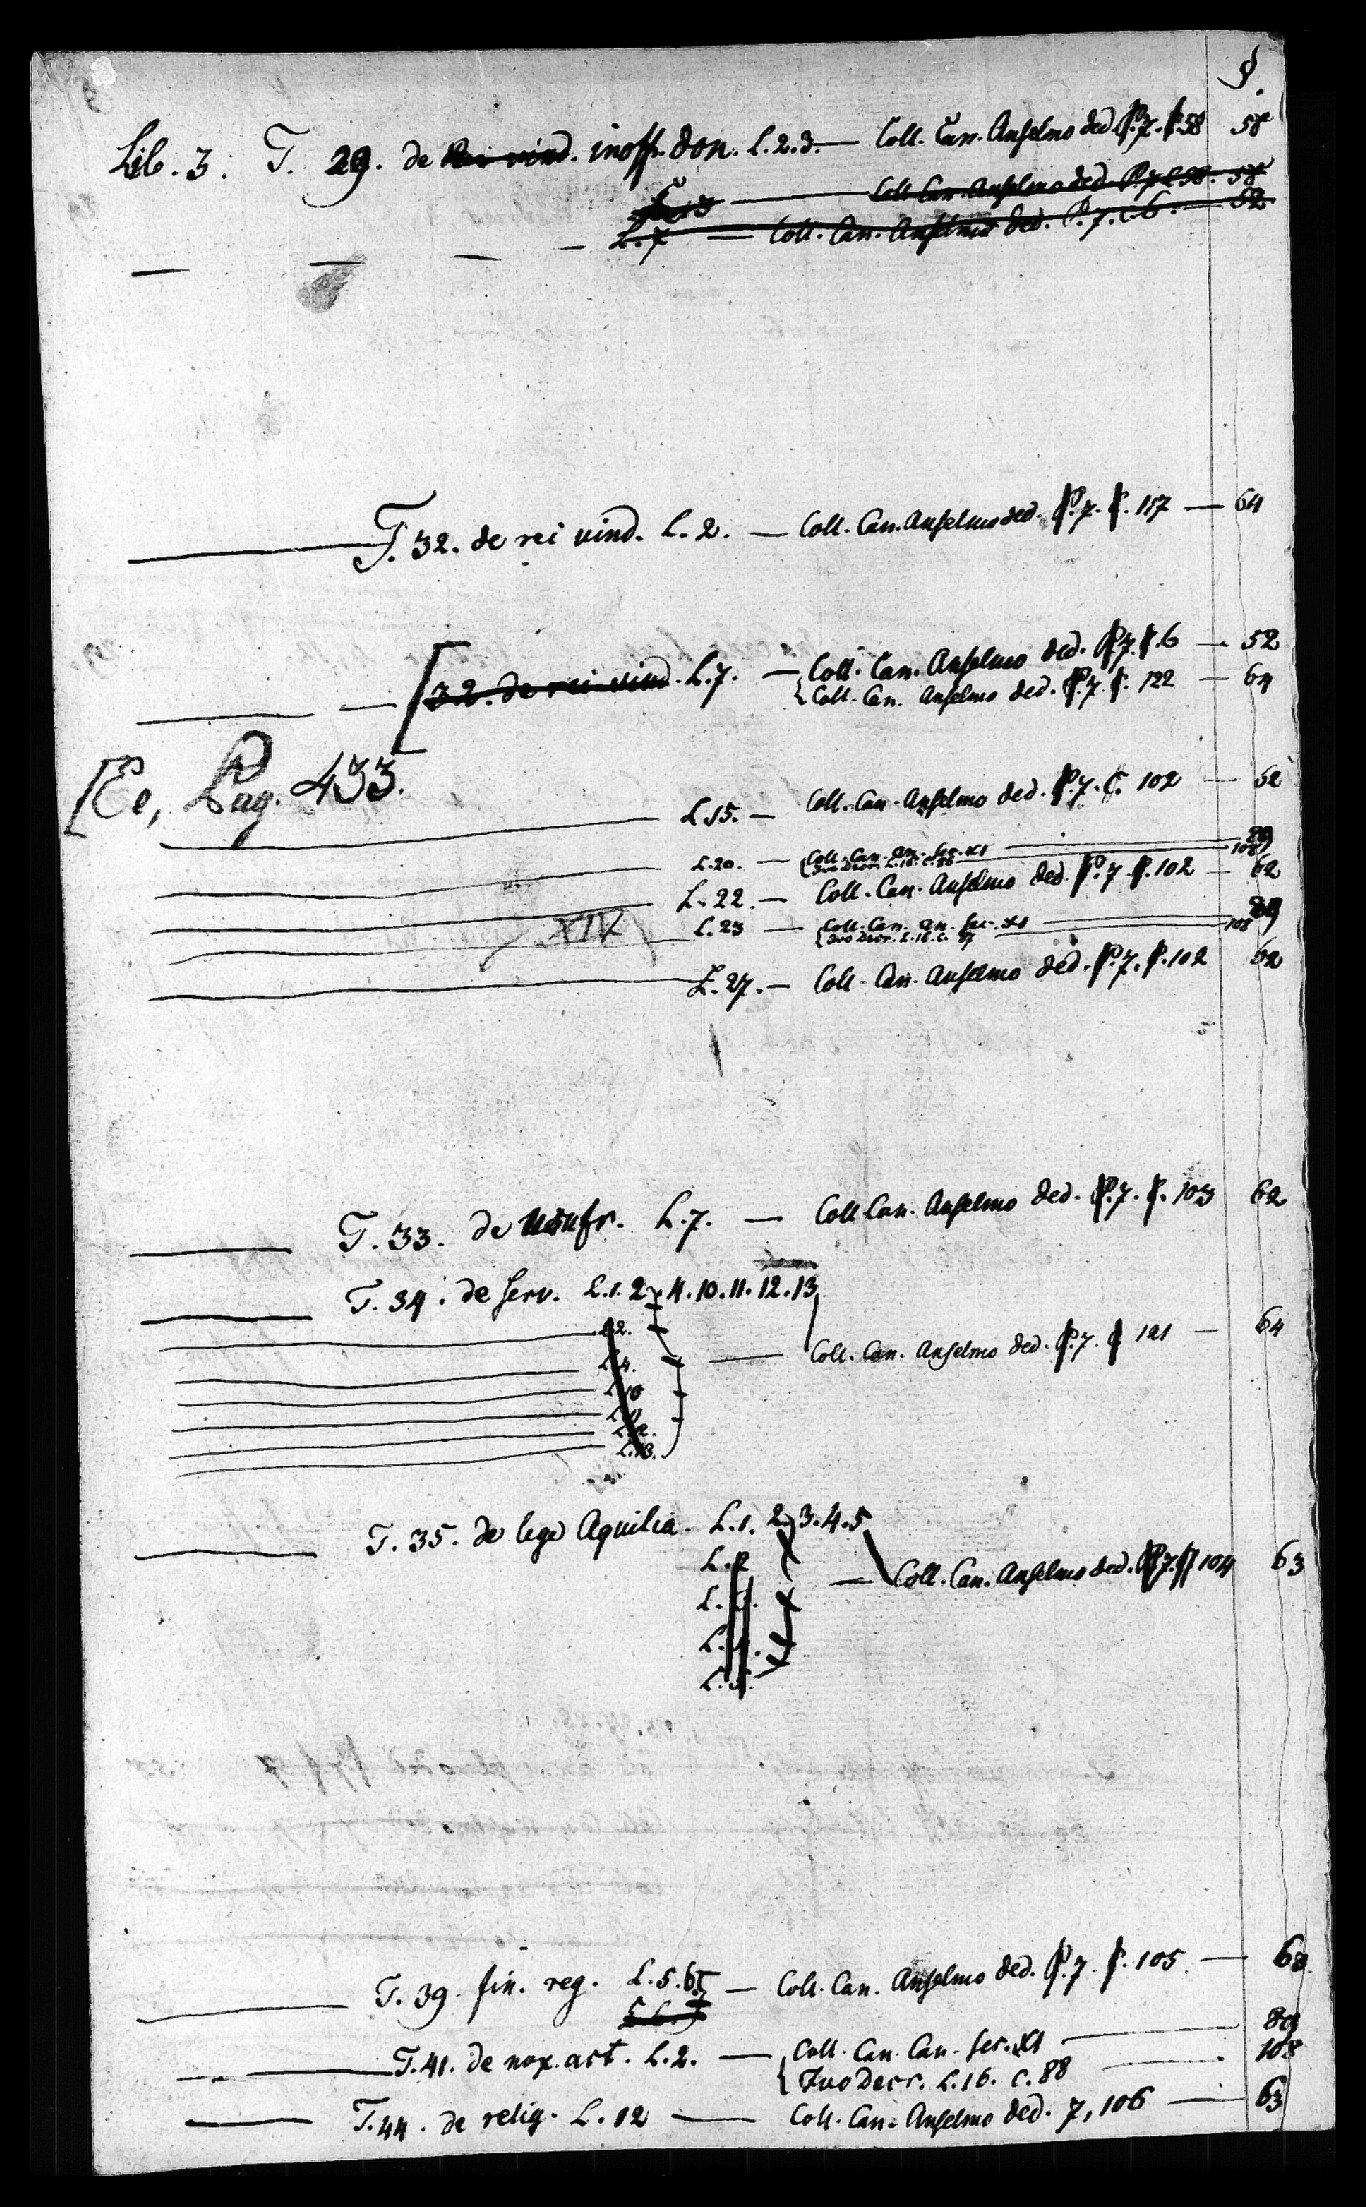 §.
Lib. 3. T. 29. de Rei vind. inoff. don. L. 2. 3. — Coll. Can. Anselmo ded. P. 7. c. 58 58
— Coll. Can. Anselmo ded. P. 7. c. 58. 58
— — — — L. 7 — Coll. Can. Anselmo ded. P. 7. c. 6. — 52
— T. 32. de rei vind. L. 2. — Coll. Can. Anselmo ded. P. 7. c. 117 — 64
— — [32. de rei vind. L. 7. — Coll. Can. Anselmo ded. P. 7. c. 6 — 52
{ Coll. Can. Anselmo ded. P. 7. c. 122 — 64
[Ee, Pag. 433.
— L. 15. — Coll. Can. Anselmo ded. P. 7. c. 102 — 62
— L. 20. — { Coll. Can. an. sec. XI —
108
— L. 22. — Coll. Can. Anselmo ded. P. 7. c. 102 — 62
XIV
— L. 23 — { Coll. Can. an. sec. XI —
Ivo Decr. L. 16. c. — 108
— L. 27. — Coll. Can. Anselmo ded. P. 7. c. 102 62
— T. 33. de usufr. L. 7. — Coll. Can. Anselmo ded. P. 7. c. 103 62
— T. 34. de serv. L. 1. 2. 4. 10. 11. 12. 13
— L. 2.
— Coll. Can. Anselmo ded. P. 7. c. 121 — 64
— L. 4.
— L. 10
— L. 11.
— L. 12.
— L. 13.
— T. 35. de lege Aquilia. L. 1. 2. 3. 4. 5
L. 2 — Coll. Can. Anselmo ded. P. 7. c. 104 63
L. 3.
L. 4.
L. 5.
— T. 39. fin. reg. L. 5. 6. — Coll. Can. Anselmo ded. P. 7. c. 105. — 63.
L. 6.
— T. 41. de nox. act. L. 2. — { Coll. Can. Can. sec. XI —
Ivo Decr. L. 16. c. 88 — 108
— T. 44. de relig. L. 12 — Coll. Can. Anselmo ded. 7, 106 — 63